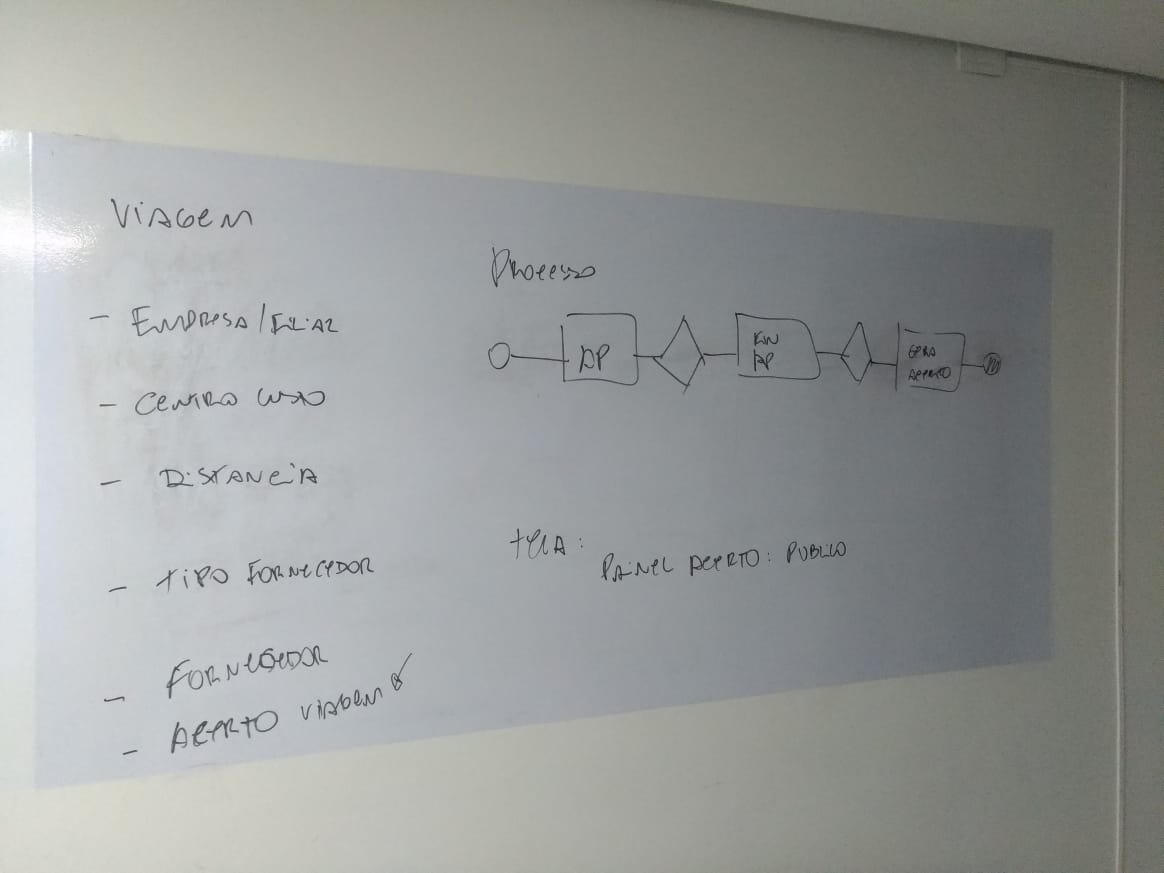 Viagem
- Empresa/Filial
- Centro Custo
- Distancia
- Tipo Fornecedor
- Fornecedor
- Acerto Viagem
Processo
AP
FIN
AP
GERA
ACERTO
tela:
Painel Acerto: Publico